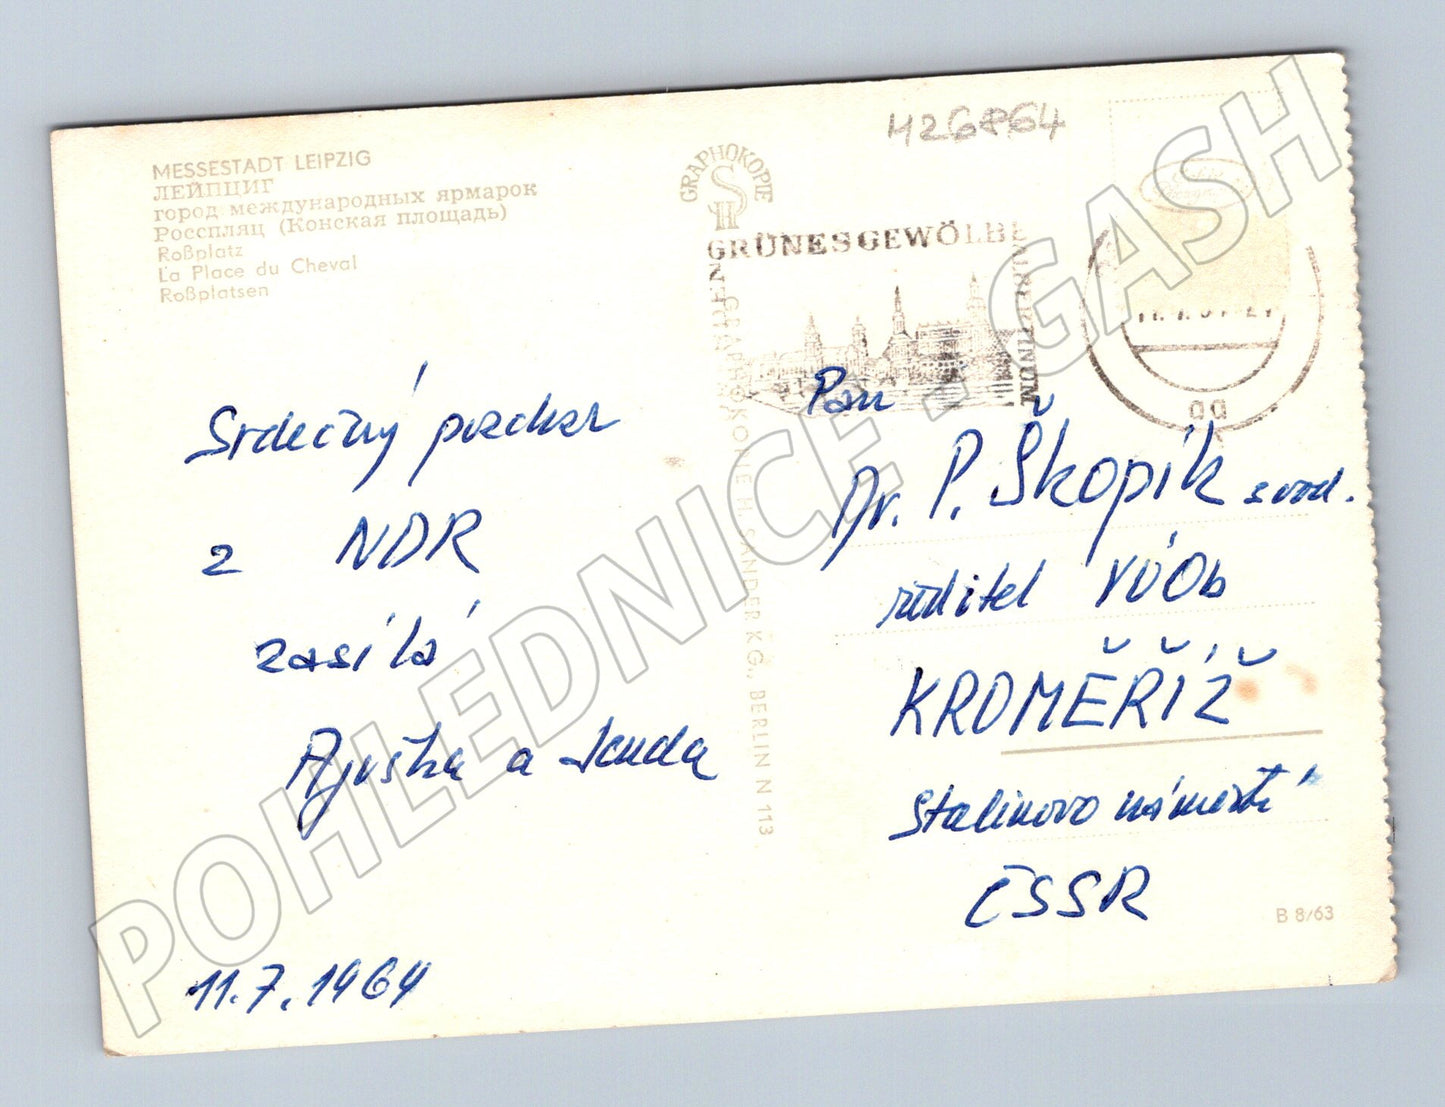 MESSESTADT LEIPZIG
ЛЕЙПЦИГ
город международных ярмарок
Россплац (Конская площадь)
Roßplatz
La Place du Cheval
Roßplatsen
GRAPHOKOPIE
SH
H26864
GRÜNES GEWÖLBE
ALBERTINUM
GRAPHOKOPIE H. SANDER KG., BERLIN N 113
Srdečný pozdrav
z NDR
zasílá
Ajuška a Janda
11.7.1964
Pan
Dr. P. Škopík s rod.
ředitel VÚOb
KROMĚŘÍŽ
Stalinovo náměstí
ČSSR
B 8/63
POHLEDNICE - GASH